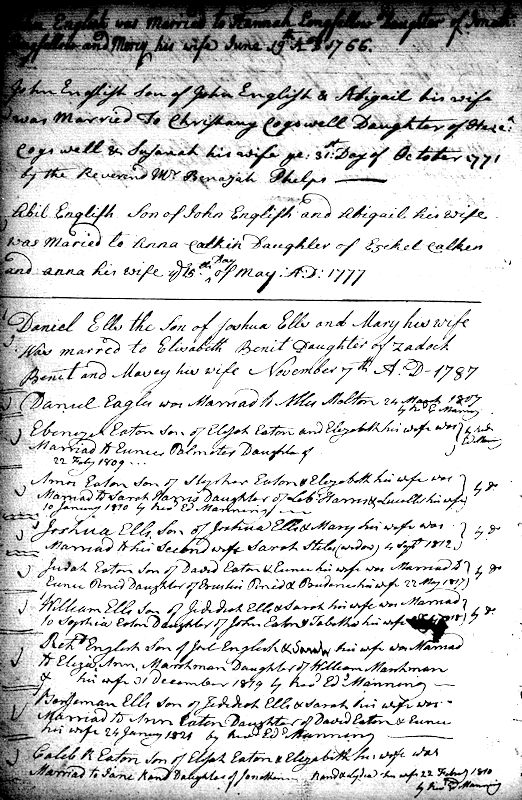 English was Married to Hannah Longfellow Daughter of
Longfellow and Mercy his wife June 19th A.D. 1766.
John English Son of John English & Abigail his wife
was Married To Christiany Cogswell Daughter of
Cogswell & Susanah his wife ye: 31st Day of October 1771
by the Reverend Mr Benajah Phelps
Abil English Son of John English and Abigail his wife
was Maried to Anna Calkin Daughter of Ezekel Calken
and anna his wife ye 15th Day of May: A:D: 1777
Daniel Ells the Son of Joshua Ells and Mary his wife
Was marred to Elisabeth Benit Daughter of Zadock
Benit and Mavey his wife November 7th A.D-1787
Daniel Eagles was Married to Molton 24 March 1807
by Red E. Manning
Ebenezer Eaton son of Elijah Eaton and Elizabeth his wife was
Married to Eunice Palmeter Daughter of
22 Feby 1809 ...
Amos Eaton son of Stepher Eaton & Elizabeth his wife was
Married to Sarah Harris Daughter of Leb: Harris & Lucilla his wife
10 January 1810 by Revd Ed Manning
Joshua Ells, Son of Joshua Ells & Mary his wife was
Married to his Second wife Sarah Stiles (widow) 4 Sept 1812
Judah Eaton son of David Eaton & Eunice his wife was Married to
Eunice Daughter of & Prudence his wife 22 May 1817
William Ells Son of Jedediah Ells & Sarah his wife was Married
to Sophia Eaton Daughter of John Eaton & Tabitha his wife
English Son of Joel English & his wife was Married
to Eliza Ann Marshman Daughter of William Marshman
& his wife 31 December 1819 by Revd Ed Manning
Ells Son of Jedediah Ells & Sarah his wife was
Married to Ann Eaton Daughter of David Eaton & Eunice
his wife 24 January 1821 by Revd Ed Manning
Caleb R Eaton son of Elijah Eaton & Elizabeth his wife was
Married to Jane Rand Daughter of Jonathan Rand & Lydia his wife 22 Febry 1810
by Revd Ed Manning